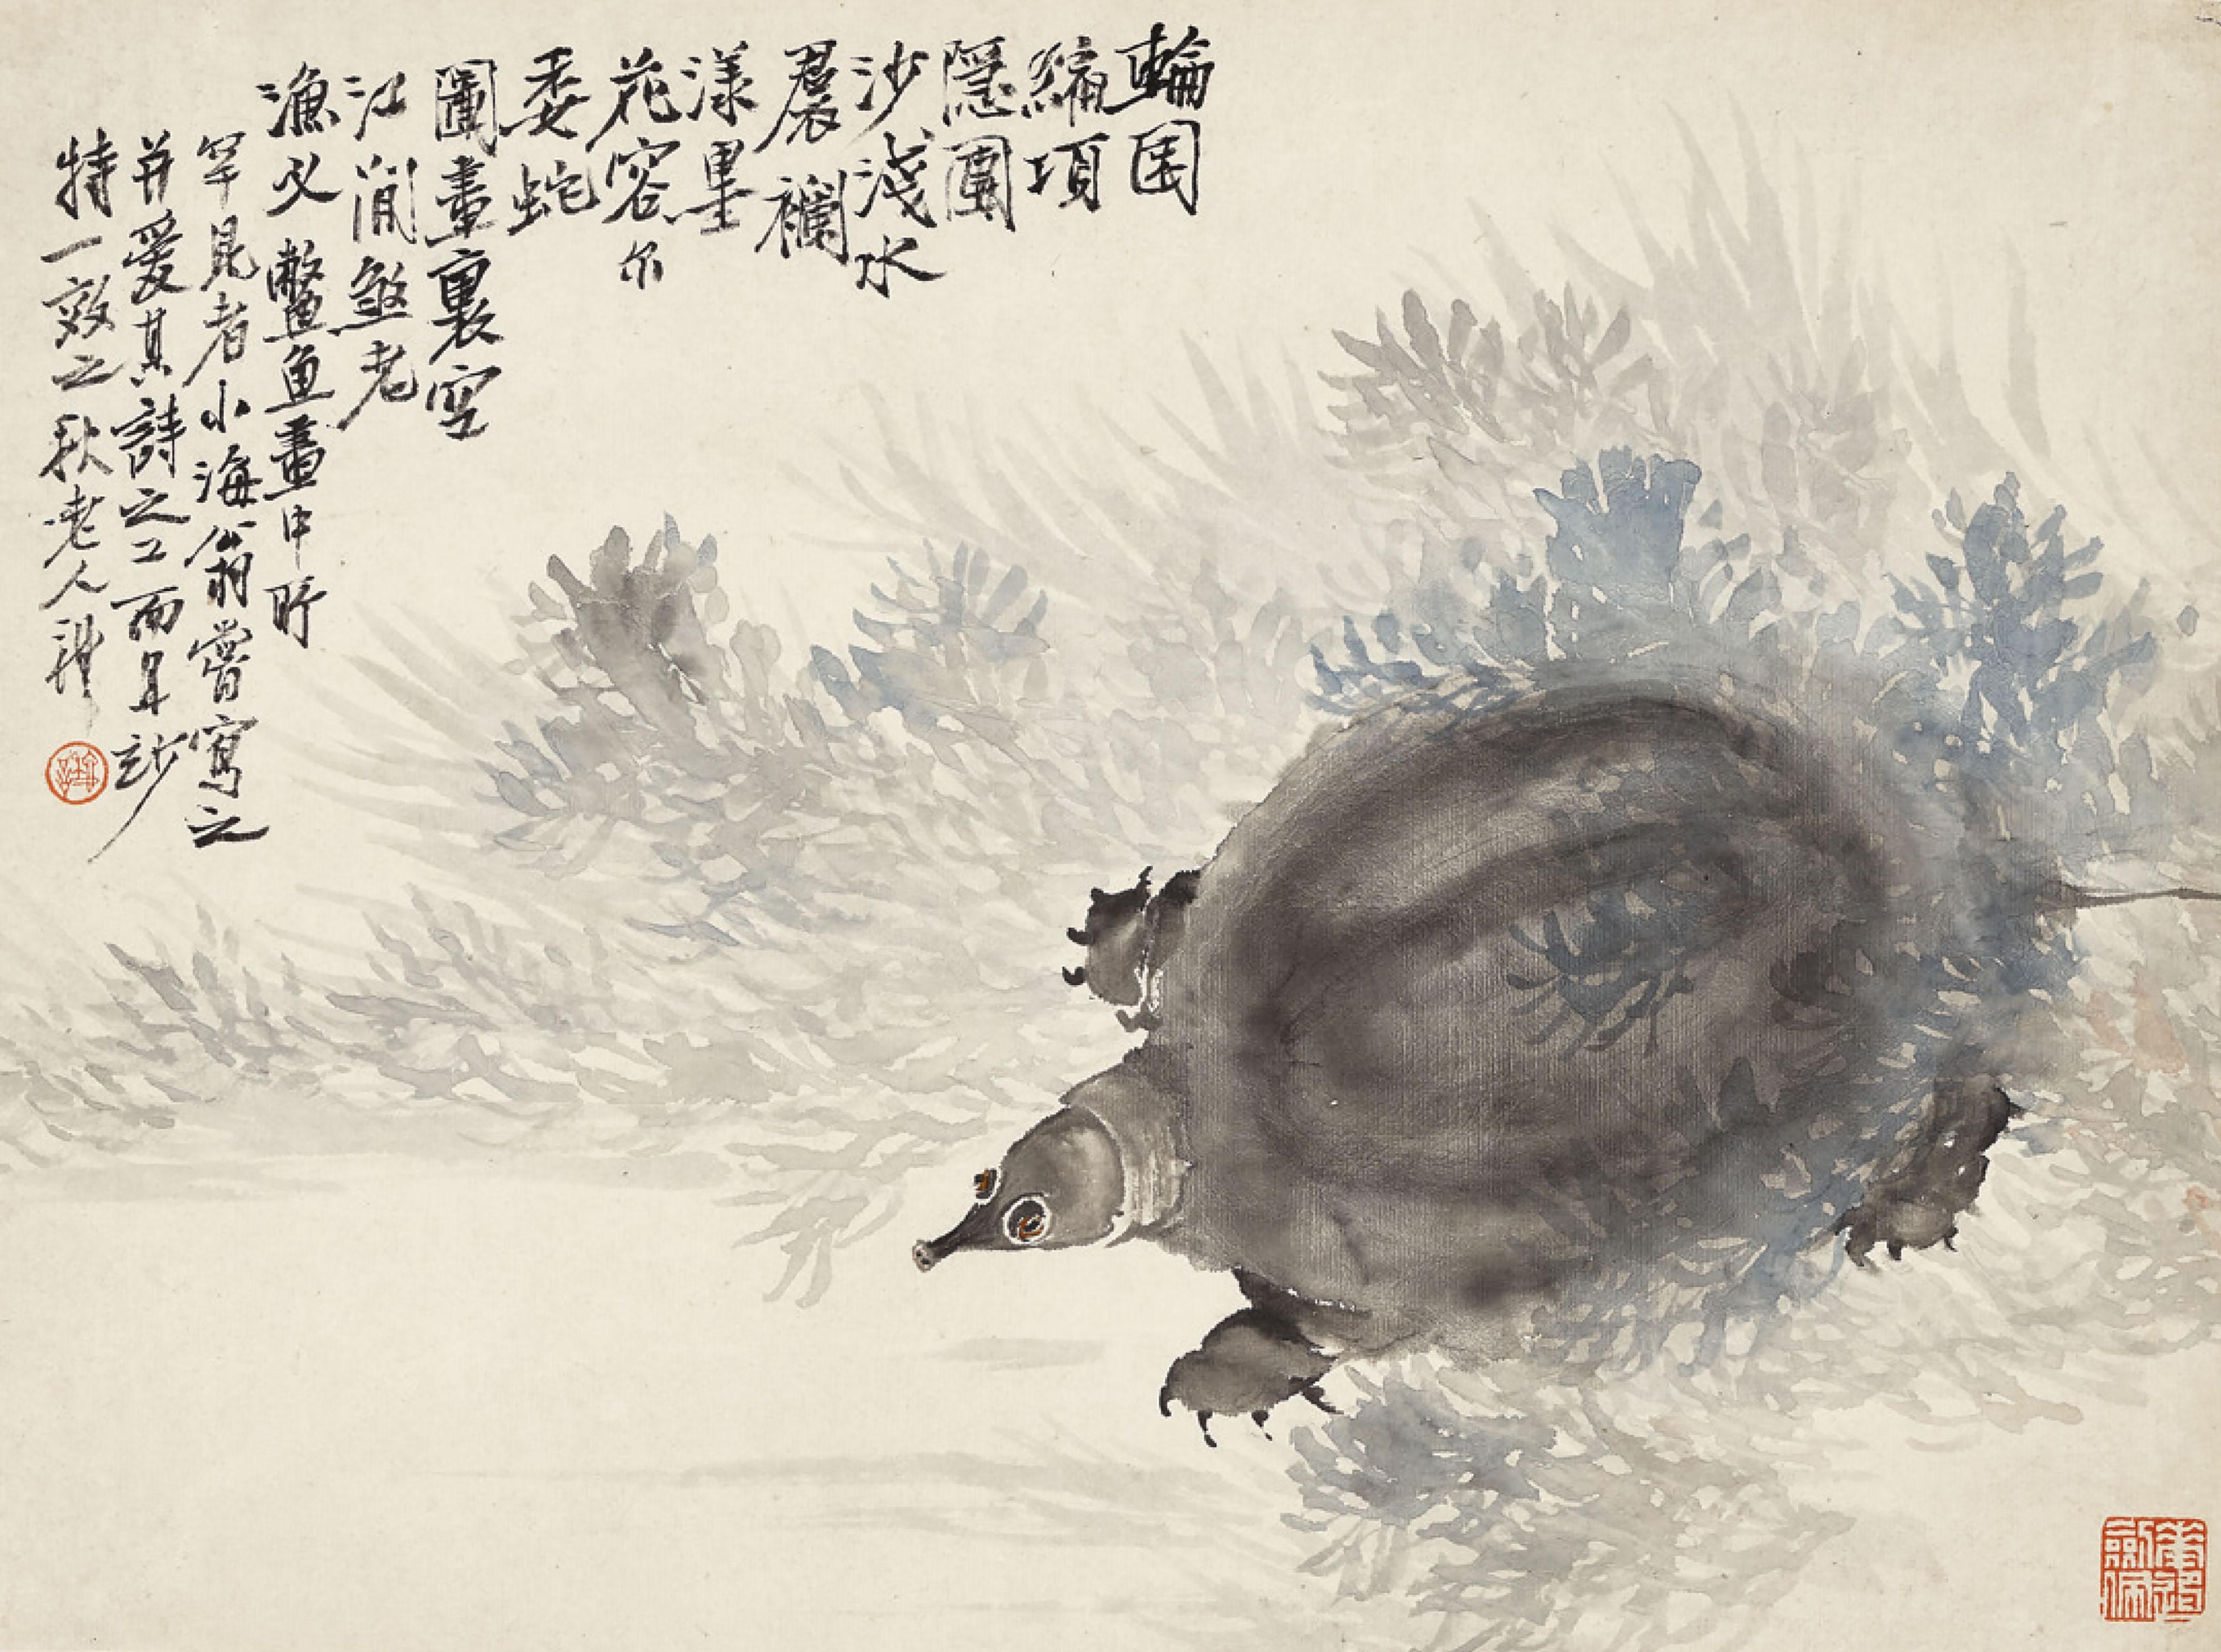 輪囷
縮項
隱團
沙淺水
裙襴
漾墨
花容尔
委蛇
圖畫裏空
江閒煞老
漁父 鱉魚畫中所
罕見者小海翁嘗寫之
并愛其詩之工而且妙
特一效之秋老人